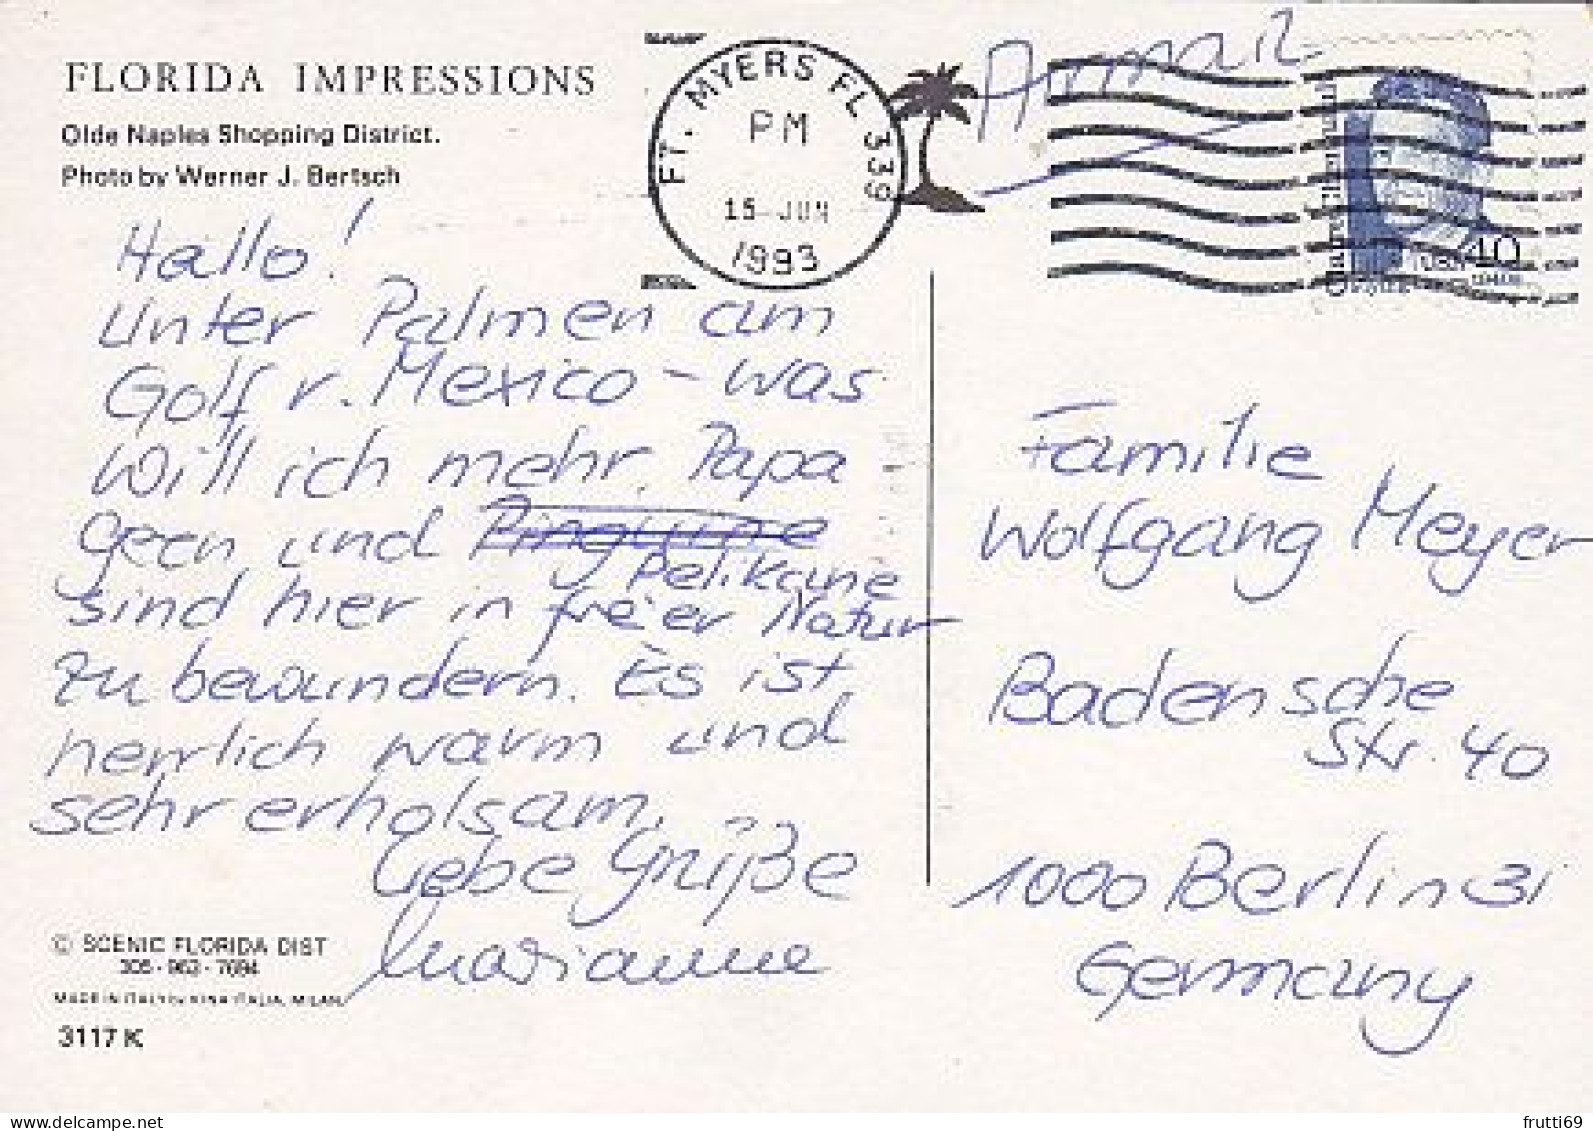 FLORIDA IMPRESSIONS
Olde Naples Shopping District.
Photo by Werner J. Bertsch
FT. MYERS FL 339
PM
15 JUN
1993
40
Hallo!
Unter Palmen am
Golf v. Mexico - was
will ich mehr. Papa
geen, und Pinguine
Pelikane
sind hier in freier Natur
zu bewundern. Es ist
herrlich warm und
sehr erholsam.
Liebe Grüße
Marianne
Familie
Wolfgang Meyer
Badensche
Str. 40
1000 Berlin 31
Germany
© SCENIC FLORIDA DIST
305-963-7694
MADE IN ITALY by KINA ITALIA, MILAN
3117 K
frutti69